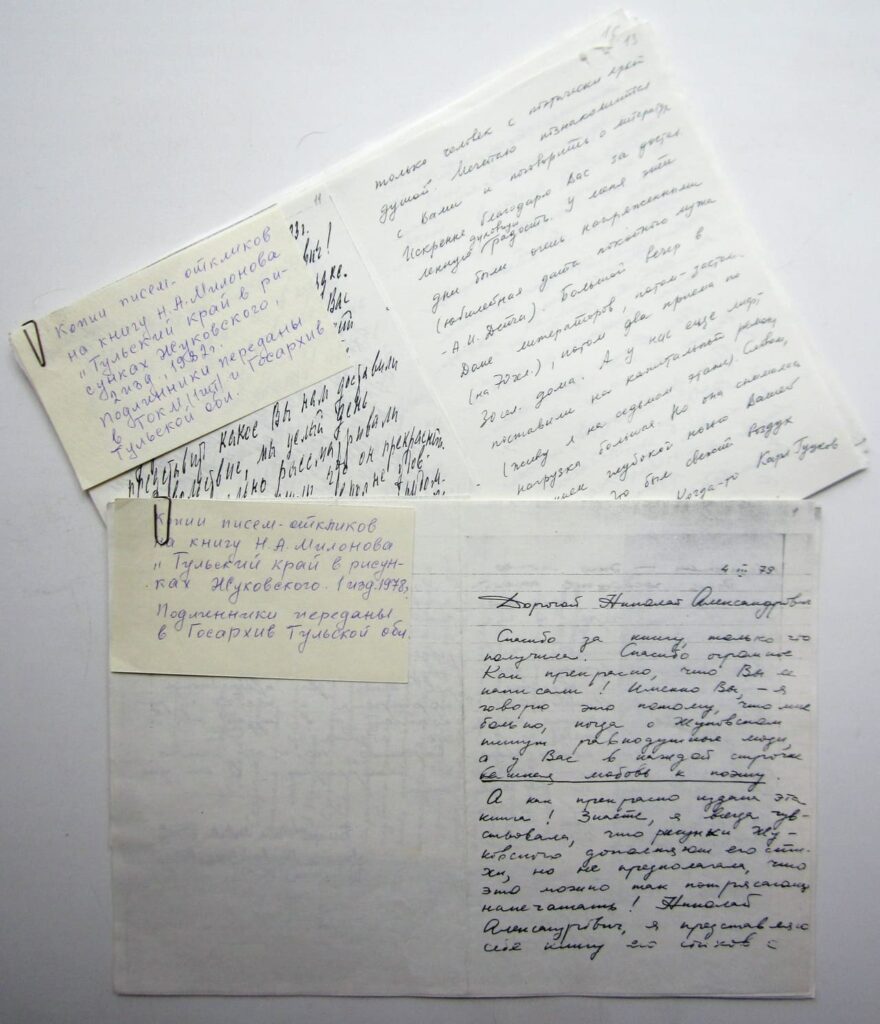 16
13
только человек с поэтически
душой. Мечтаю познакомиться
с Вами и поговорить о литерату
Искренне благодарю Вас за достав
духовную
ленную радость. У меня эти
дни были очень напряженными
(юбилейная дата покойного мужа
- А.И. Дейча). Большой вечер в
Доме литераторов, потом
(на 70 чел.), потом два приема по
30 чел. дома. А у нас еще
поставили на капитальный
(живу я на седьмом этаже). Словом,
нагрузка большая. Но она
глубокой ночью Вашей
был свежий воздух
Когда-то Карл Гуцков
11
Вас
какое Вы нам доставили
мы целый день
рассматривали
что он прекрасн
Копии писем-откликов
на книгу Н.А.Милонова
"Тульский край в ри-
сунках Жуковского,
2 изд., 1982 г.
Подлинники переданы
в Госархив
Тульской обл.
Копии писем-откликов
на книгу Н.А.Милонова
"Тульский край в рисун-
ках Жуковского. 1 изд. 1978,
Подлинники переданы
в Госархив Тульской обл.
4 III 79
Дорогой Николай Александрович
Спасибо за книгу, только что
получила. Спасибо огромное.
Как прекрасно, что Вы ее
написали! Именно Вы, - я
говорю это потому, что мне
больно, когда о Жуковском
пишут равнодушные люди,
а у Вас в каждой строчке
любовь к поэту.
А как прекрасно издана эта
книга! Знаете, я всегда чув-
ствовала, что рисунки Жу-
ковского дополняют его сти-
хи, но не предполагала, что
это можно так потрясающе
напечатать! Николай
Александрович, я представляю
себе книгу его стихов с